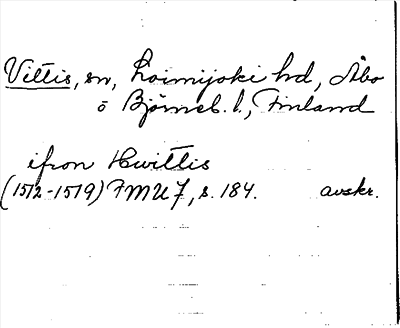 Vittis, sn, Loimijoki hd, Åbo
o Björneb. l., Finland
ifron Hwittis
(1512-1519) FMU 7, s. 184. avskr.